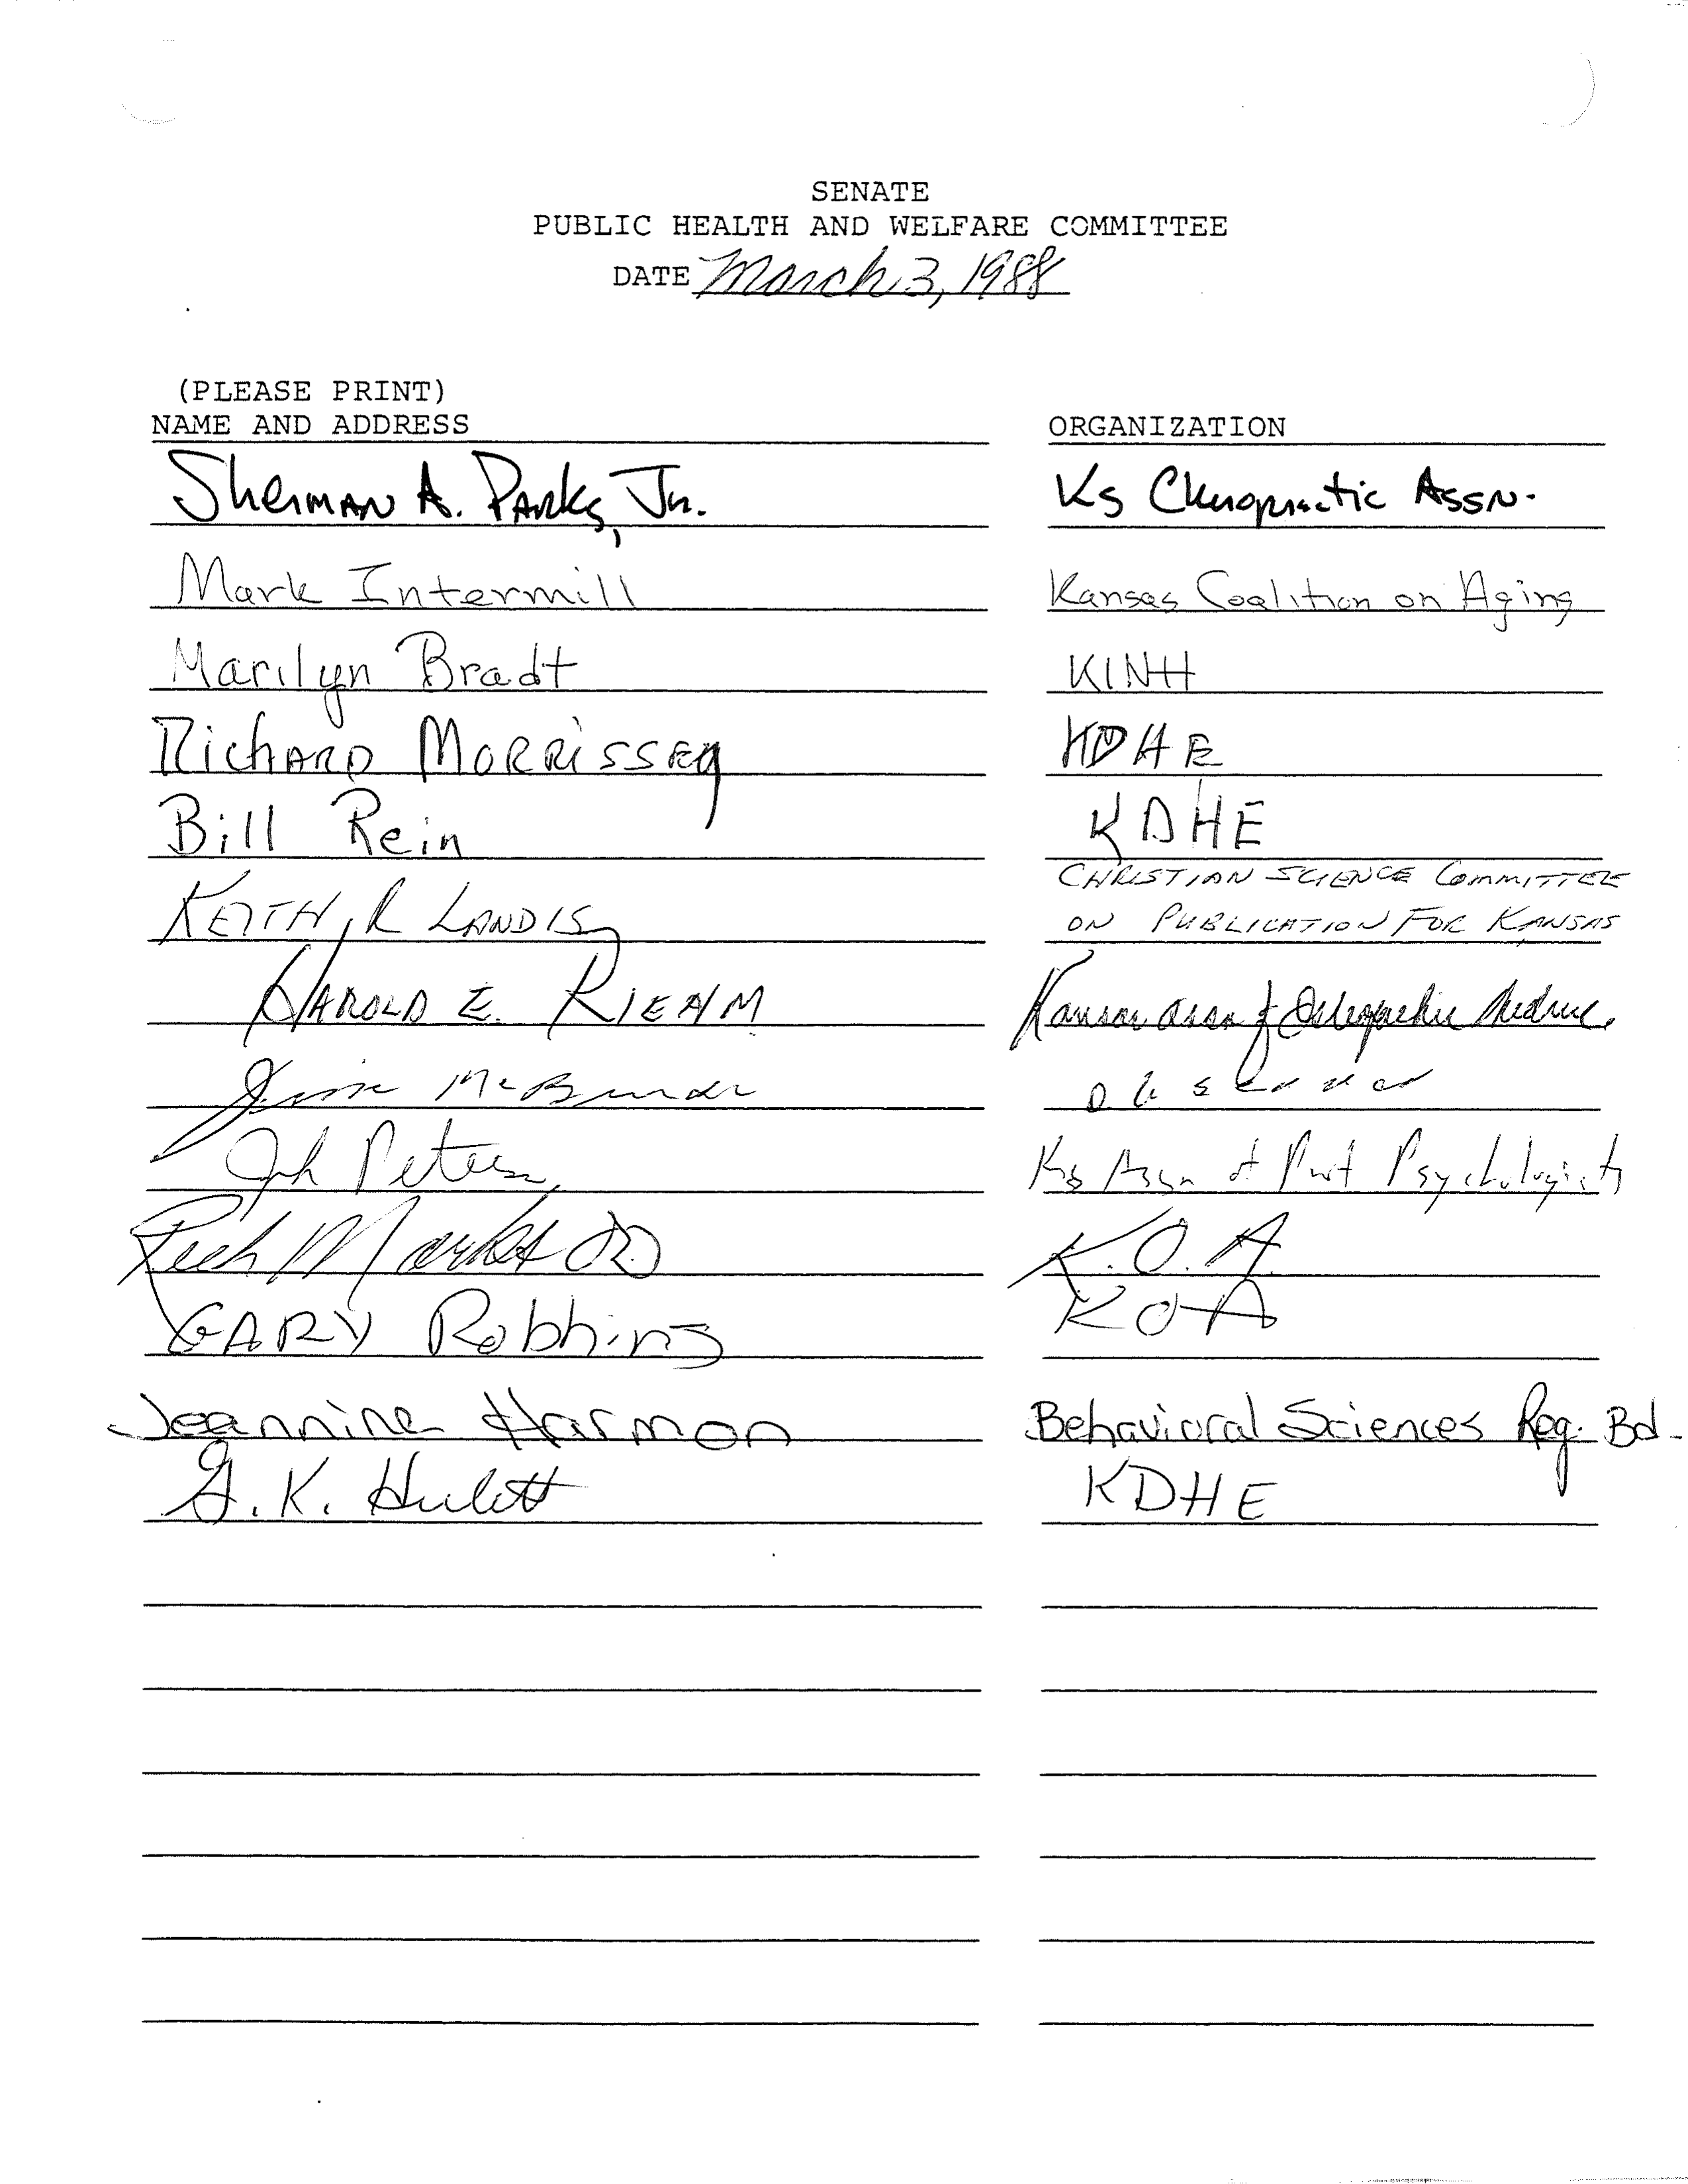 SENATE
PUBLIC HEALTH AND WELFARE COMMITTEE
DATE March 3, 1988
(PLEASE PRINT)
NAME AND ADDRESS ORGANIZATION
Sherman A. Parks, Jr. Ks Chiropractic Assn.
Mark Intermill Kansas Coalition on Aging
Marilyn Bradt KINH
Richard Morrissey KDHE
Bill Rein KDHE
KEITH R LANDIS CHRISTIAN SCIENCE COMMITTEE
ON PUBLICATION FOR KANSAS
HAROLD E. RIEHM Kansas Assn of Osteopathic Medicine
Jim McBride observer
Peterson Ks Assn of Prof Psychologists
K.O.A.
GARY Robbins KOA
Jeannine Harmon Behavioral Sciences Reg. Bd.
G.K. Hulett KDHE